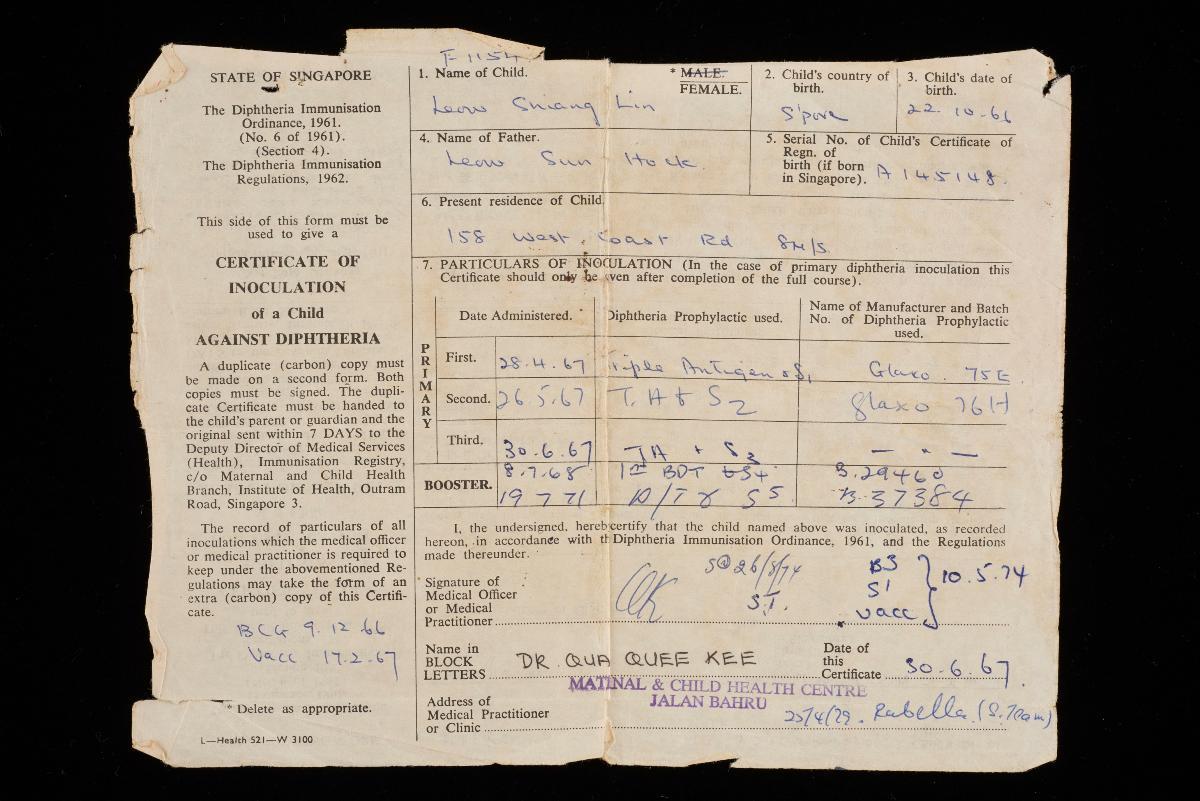 STATE OF SINGAPORE
The Diphtheria Immunisation
Ordinance, 1961.
(No. 6 of 1961).
(Section 4).
The Diphtheria Immunisation
Regulations, 1962.
This side of this form must be
used to give a
CERTIFICATE OF
INOCULATION
of a Child
AGAINST DIPHTHERIA
A duplicate (carbon) copy must
be made on a second form. Both
copies must be signed. The dupli-
cate Certificate must be handed to
the child's parent or guardian and the
original sent within 7 DAYS to the
Deputy Director of Medical Services
(Health), Immunisation Registry,
c/o Maternal and Child Health
Branch, Institute of Health, Outram
Road, Singapore 3.
The record of particulars of all
inoculations which the medical officer
or medical practitioner is required to
keep under the abovementioned Re-
gulations may take the form of an
extra (carbon) copy of this Certifi-
cate.
BCG 9.12.66
Vacc 17.2.67
* Delete as appropriate.
L—Health 521—W 3100
F 1154
1. Name of Child.
* MALE.
FEMALE.
Leow Shiang Lin
2. Child's country of
birth.
S'pore
3. Child's date of
birth.
22.10.66
4. Name of Father.
Leow Sun Hock
5. Serial No. of Child's Certificate of
Regn. of
birth (if born
in Singapore). A 145148.
6. Present residence of Child.
158 West Coast Rd 8M/S.
7. PARTICULARS OF INOCULATION (In the case of primary diphtheria inoculation this
Certificate should only be ven after completion of the full course).
Date Administered.
Diphtheria Prophylactic used.
Name of Manufacturer and Batch
No. of Diphtheria Prophylactic
used.
PRIMARY
First. 28.4.67 Triple Antigen & S1 Glaxo. 75E
Second. 26.5.67 T.A & S2 Glaxo 76H
Third. 30.6.67 TA + S3 — " —
BOOSTER.
8.7.68 1st BDT S4 B.29460
19 7 71 D/T & S5 B.37384
I, the undersigned, hereb certify that the child named above was inoculated, as recorded
hereon, in accordance with th Diphtheria Immunisation Ordinance, 1961, and the Regulations
made thereunder.
Signature of
Medical Officer
or Medical
Practitioner
26/8/74
S.T.
B3
S1
Vacc
10.5.74
Name in
BLOCK
LETTERS DR. QUA QUEE KEE
Date of
this
Certificate 30.6.67
MATINAL & CHILD HEALTH CENTRE
JALAN BAHRU
Address of
Medical Practitioner
or Clinic
25/4/79. Rubella (S.Team)